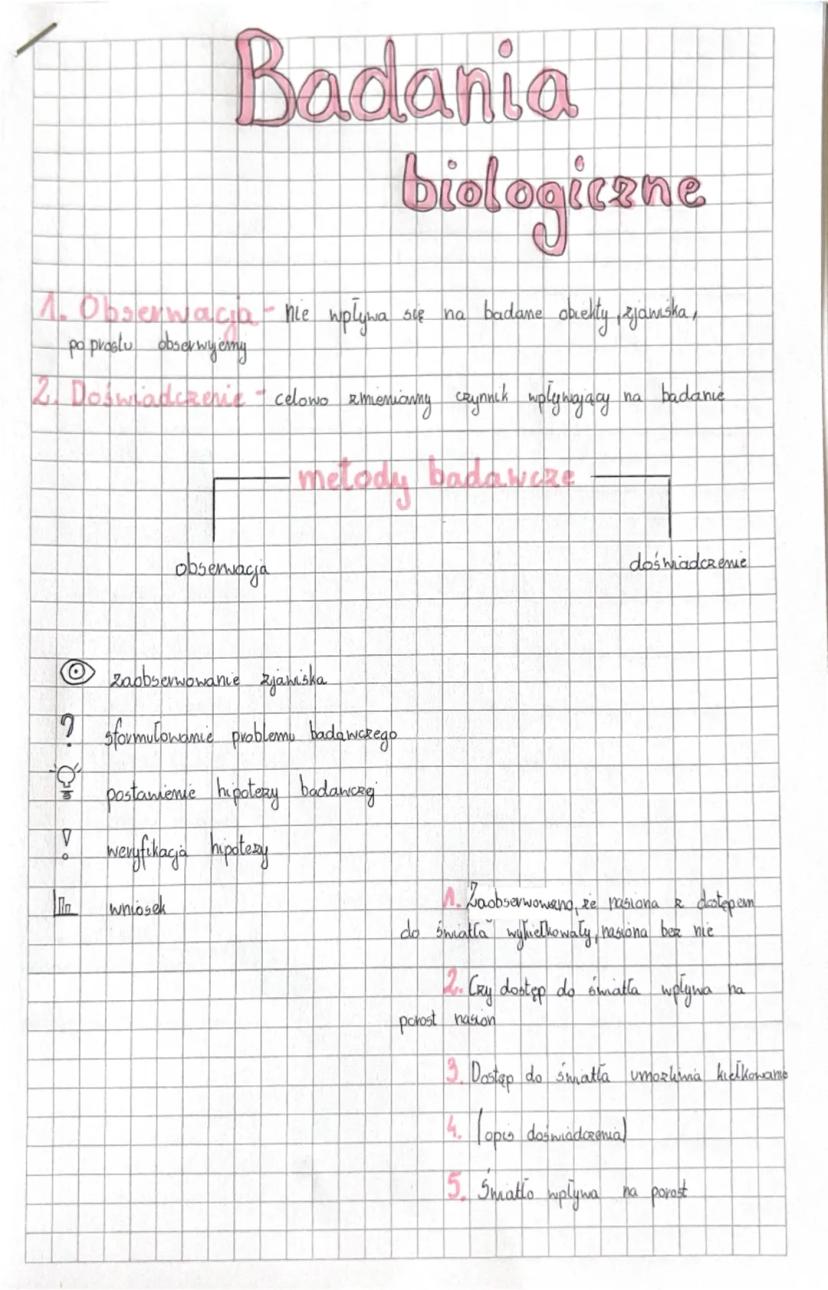 Badania
biologiczne
1. Obserwacja - nie wpływa się na badane obiekty, zjawiska,
po prostu obserwujemy
2. Doświadczenie - celowo zmienionny czynnik wpływający na badanie
metody badawcze
obserwacja
doświadczenie
zaobserwowanie zjawiska
? sformułowanie problemu badawczego
postawienie hipotezy badawczej
! weryfikacja hipotezy
wniosek
1. Zaobserwowano, że nasiona z dostępem
do światła wykiełkowały, nasiona bez nie
2. Czy dostęp do światła wpływa na
porost nasion
3. Dostęp do światła umożliwia kiełkowanie
4. (opis doświadczenia)
5. Światło wpływa na porost